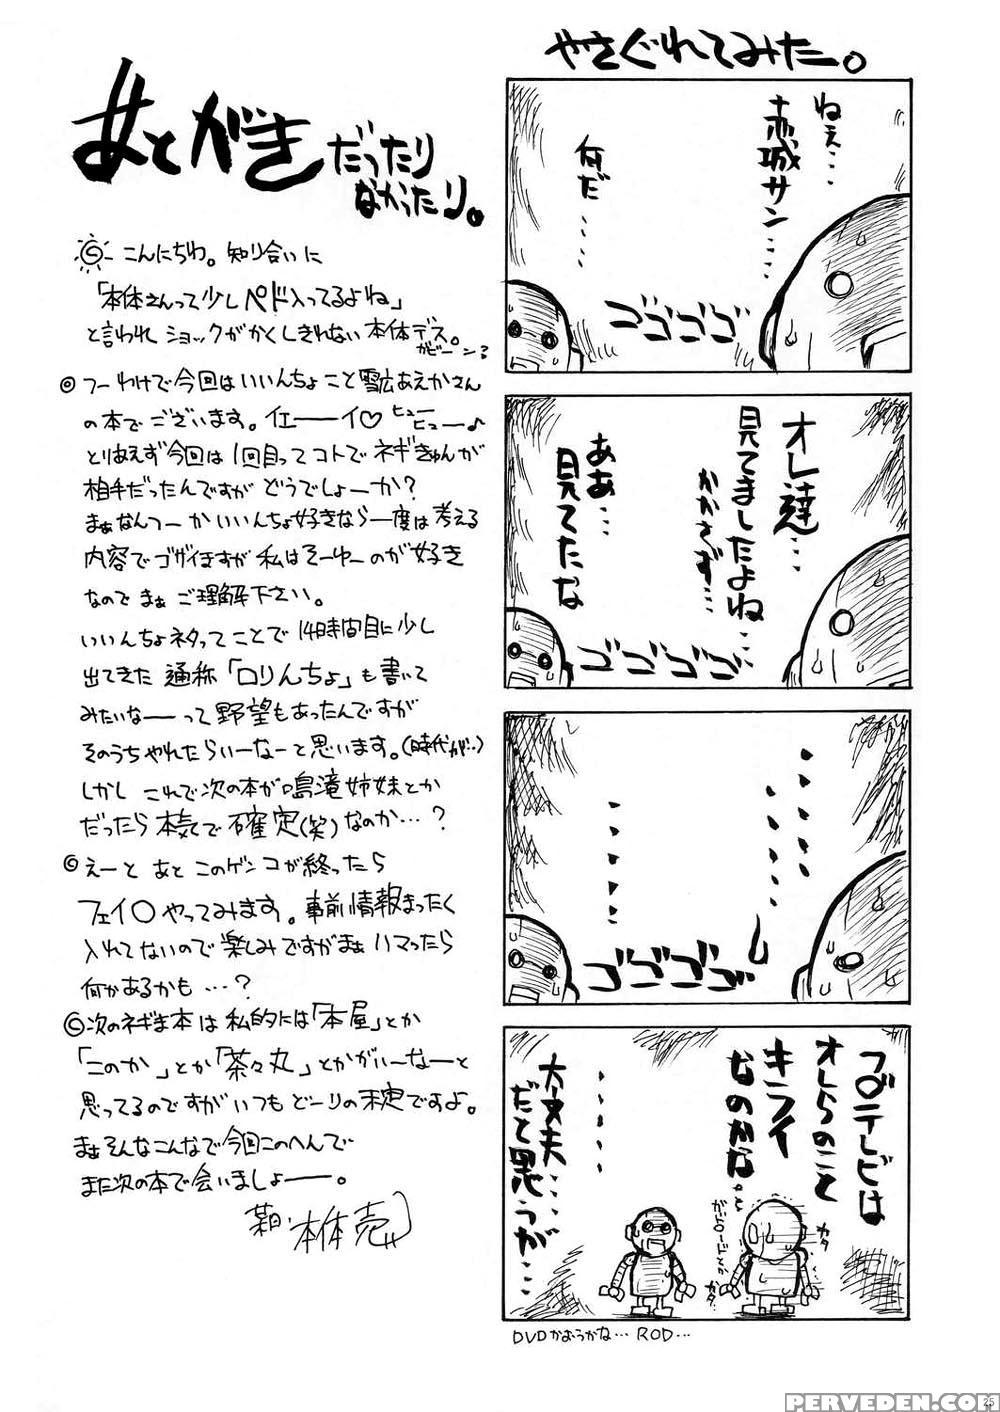 あとがき だったり
なかったり。
こんにちわ。知り合いに
「本体さんって少しペド入ってるよね」
と言われショックがかくしきれない本体デス。
ガビーン
◎つーわけで今回はいいんちょこと雪広あえかさん
の本でございます。イエーーイ♡ヒューヒュー♪
とりあえず今回は1回目ってコトでネギきゅんが
相手だったんですがどうでしょーか?
まぁなんつーかいいんちょ好きなら一度は考える
内容でゴザイますが私はそーゆーのが好き
なのでまぁご理解下さい。
いいんちょネタってことで14時間目に少し
出てきた通称「ロリんちょ」も書いて
みたいなーーって野望もあったんですが
そのうちやれたらいーなーと思います。(時代が…)
しかしこれで次の本が鳴滝姉妹とか
だったら本気で確定(笑)なのか…?
◎えーとあとこのゲンコが終ったら
フェイ○やってみます。事前情報まったく
入れてないので楽しみですがまぁハマったら
何かあるかも…?
◎次のネギま本は私的には「本屋」とか
「このか」とか「茶々丸」とかがいーなーと
思ってるのですがいつもどーりの未定ですよ。
まぁそんなこんなで今回このへんで
また次の本で会いましょーー。
本体売
やさぐれてみた。
ねぇ…
赤城サン……
何だ……
ゴゴゴゴ
オレ達…
見てましたよね…
かかさず…
ああ…
見てたな
ゴゴゴゴ
ゴゴゴゴ
フ○テレビは
オレらのこと
キライ
なのかな。と
がぃ○ードとか
カタ
カタ
……
大丈夫……
だと思うが…
DVDかおうかな… ROD…
25
PERVEDEN.COM